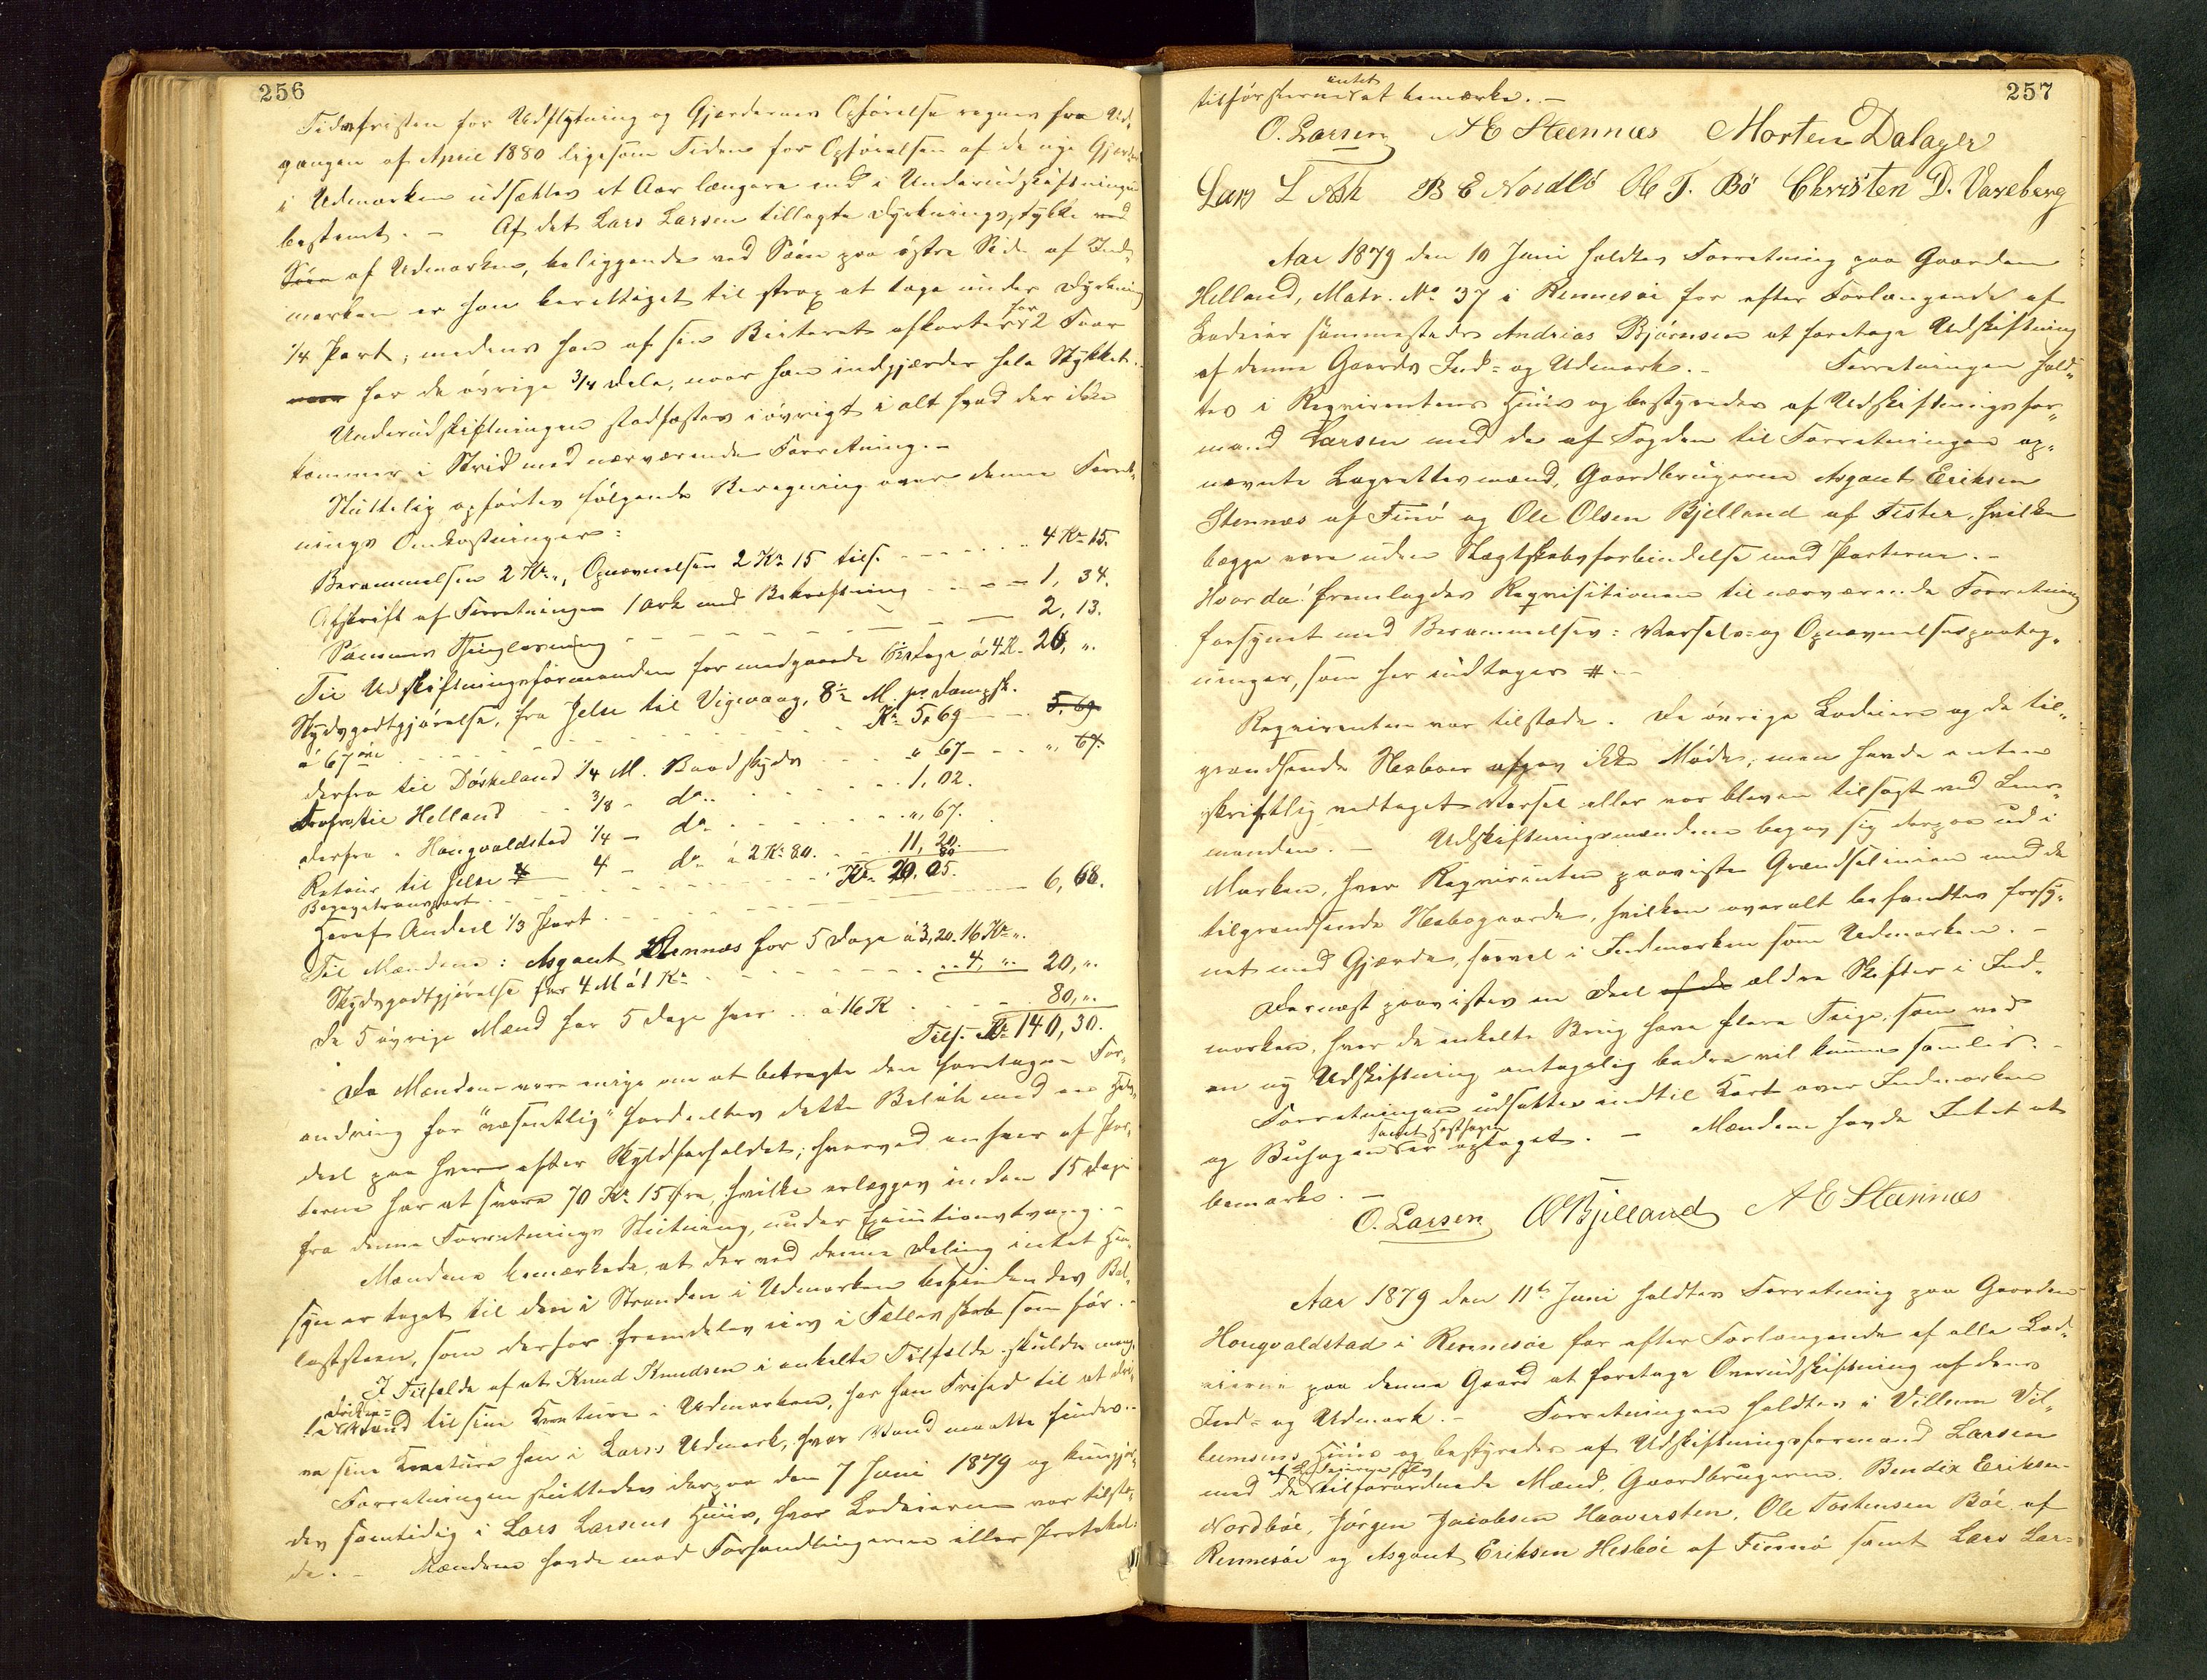 256
Tidsfristen for Udflytning og Gjerdernes Opførelse regnes fra Ud-
gangen af April 1880 ligesom Tiden for Opførelsen af de nye Gjerder
i Udmarken udsættes et Aar længere end i Underudskiftningen
bestemt. – Af det Lars Larsen tillagte Dyrkningsstykke ved
Søen af Udmarken, beliggende ved Søen paa østre Side af Ind-
marken er han berettiget til strax at tage under Dyrkning
1/4 Part, medens han af sin Beiteret afkortes for 2 Faar
for de øvrige 3/4 Dele, naar han indgjærder hele Stykket.
Underudskiftningen stadfæstes iøvrigt i alt hvad der ikke
kommer i Strid med nærværende Forretning. –
Sluttelig opførtes følgende Beregning over denne Forret-
nings Omkostninger:
Berammelsen 2 Kr. „, Opnævnelsen 2 Kr 15 tils. 4 Kr 15.
Afskrift af Forretningen 1 Ark med Bekræftning 1, 34.
Sammes Thinglæsning 2, 13.
Til Udskiftningsformanden for medgaaede 6 1/2 Dage á 4 K. 26, „.
Skydsgodtgjørelse, fra Jelse til Vigevaag, 8 1/2 M. pr. Dampsk.
á 67 øre Kr 5,69 5,69
derfra til Døskeland 1/4 M. Baadskyds „ 67 „ 67.
derfra til Helland 3/8 – do. 1,02.
derfra „ Hougvaldstad 1/4 – do. „, 67.
Retour til Jelse 4 – do. á 2 Kr 80. 11, 20.
Bagagetransport 80
Kr. 20. 05.
Heraf Andeel 1/3 Part 6, 68.
Til Mændene: Asgaut Stennæs for 5 Dage á 3,20. 16 Kr „.
Skydsgodtgjørelse for 4 M á 1 Kr 4, „. 20, „.
De 5 øvrige Mænd for 5 Dage hver á 16 K 80, „.
Tils. Kr 140, 30.
Da Mændene vare enige om at betragte den foretagne For-
andring for "væsentlig" fordeeltes dette Beløb med en Halv-
deel paa hver efter Skyldforholdet; hvorved enhver af Par-
terne har at svare 70 Kr. 15 Øre, hvilke erlægges inden 15 Dage
fra denne Forretnings Slutning, under Executionstvang. –
Mændene bemærkede, at der ved denne Deling intet Hen-
syn er taget til den i Stranden i Udmarken befindendes Bal-
laststeen, som derfor fremdeles eies i Fællesskab som før. –
I Tilfælde af at Knud Knudsen i enkelte Tilfælde skulde mang-
le Drikke-Vand til sine Kreature i Udmarken, har han Frihed til at dri-
ve sine Kreature hen i Larses Udmark, hvor Vand maatte findes. –
Forretningen sluttedes derpaa den 7 Juni 1879 og kundgjor-
des samtidig i Lars Larsens Huus, hvor Lodeierne var tilste-
de. – Mændene havde mod Forhandlingerne eller Protokol-
257
tilførslerne intet at bemærke. –
O. Larsen A E Steennæs Morten Dalager
Lars L Ask B E Nordbø O T. Bø Christen D. Vareberg
Aar 1879 den 10 Juni holdtes Forretning paa Gaarden
Helland, Matr. No 37 i Rennesøe for efter Forlangende af
Lodeier sammesteds Andreas Bjørnsen at foretage Udskiftning
af denne Gaards Ind- og Udmark. – Forretningen hold-
tes i Reqvirentens Huus og bestyredes af Udskiftningsfor-
mand Larsen med de af Fogden til Forretningen op-
nævnte Lagrettesmænd, Gaardbrugerne Asgaut Eriksen
Stennæs af Finø og Ole Olsen Bjelland af Fister, hvilke
begge vare uden Slægtskabsforbindelse med Parterne. –
Hvorda: fremlagdes Reqvisitionen til nærværende Forretning
forsynet med Berammelses- Varsels- og Opnævnelsespaateg-
ninger, som her indtages #. –
Reqvirenten var tilstede. De øvrige Lodeiere og de til-
grændsende Naboer afgav ikke Møde, men havde enten
skriftlig vedtaget Varsel eller var bleven tilsagt ved Lens-
manden. – Udskiftningsmændene begav sig derpaa ud i
Marken, hvor Reqvirenten paaviste Grændselinien med de
tilgrændsende Nabogaarde, hvilken overalt befandtes forsy-
net med Gjærde, saavel i Indmarken som Udmarken. –
Dernæst paavistes en Deel af de ældre Skifter i Ind-
marken, hvor de enkelte Brug have flere Teige, som ved
en ny Udskiftning antagelig bedre vil kunne samles. –
Forretningen udsattes indtil Kart over Indmarken
og Buhagen samt Hesthagen er optaget. – Mændene havde Intet at
bemærke. –
O. Larsen OOBjelland A E Steennæs
Aar 1879 den 11te Juni holdtes Forretning paa Gaarden
Hougvaldstad i Rennesøe for efter Forlangende af alle Lod-
eierne paa denne Gaard at foretage Overudskiftning af dens
Ind- og Udmark. – Forretningen holdtes i Villum Vil-
lumsens Huus og bestyredes af Udskiftningsformand Larsen
med de tilforordnede Mænd, Gaardbrugerne Bendix Eriksen
Nordbøe, Jørgen Jacobsen Haaversten, Ole Tostensen Bøe af
Rennesøe og Asgaut Eriksen Hesbøe af Finnø samt Lars Lar-